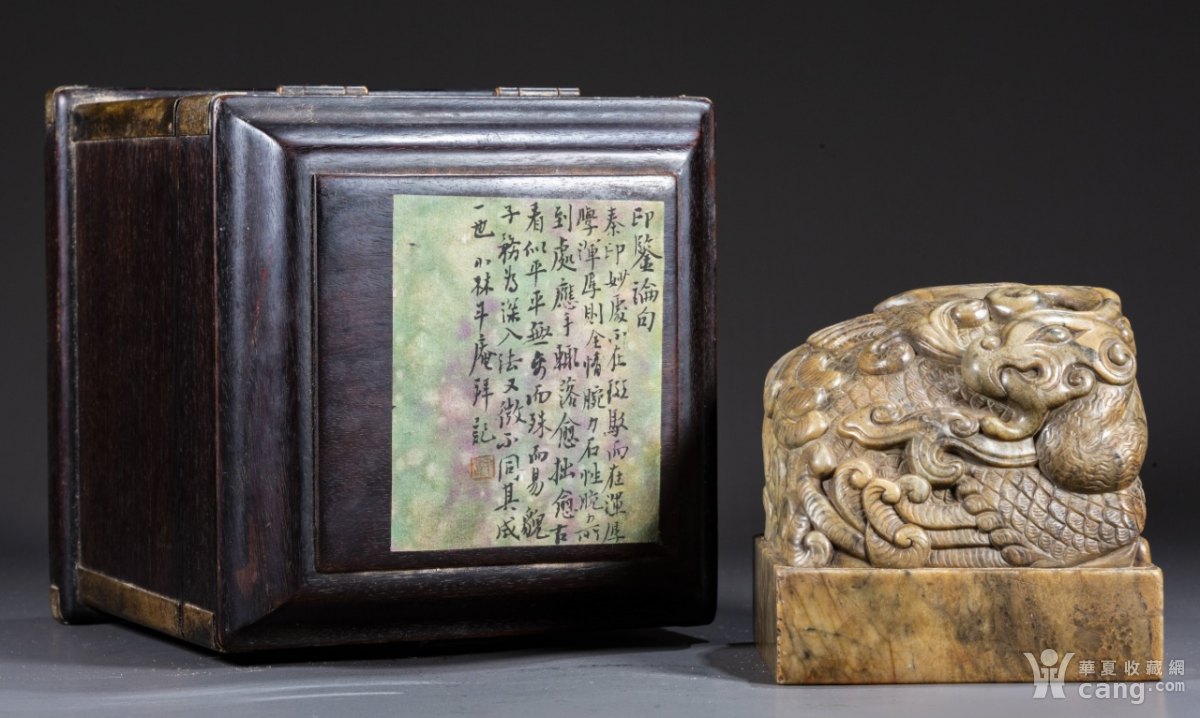 印鑒論句
秦印妙處不在斑駁而在渾厚
學渾厚則全惰腕力石性腕力所
到處應手輒落愈拙愈古
看似平平無奇而殊而易貌
予務為深入法又微不同其成
一也 小林斗庵拜記
華夏收藏網
cang.com